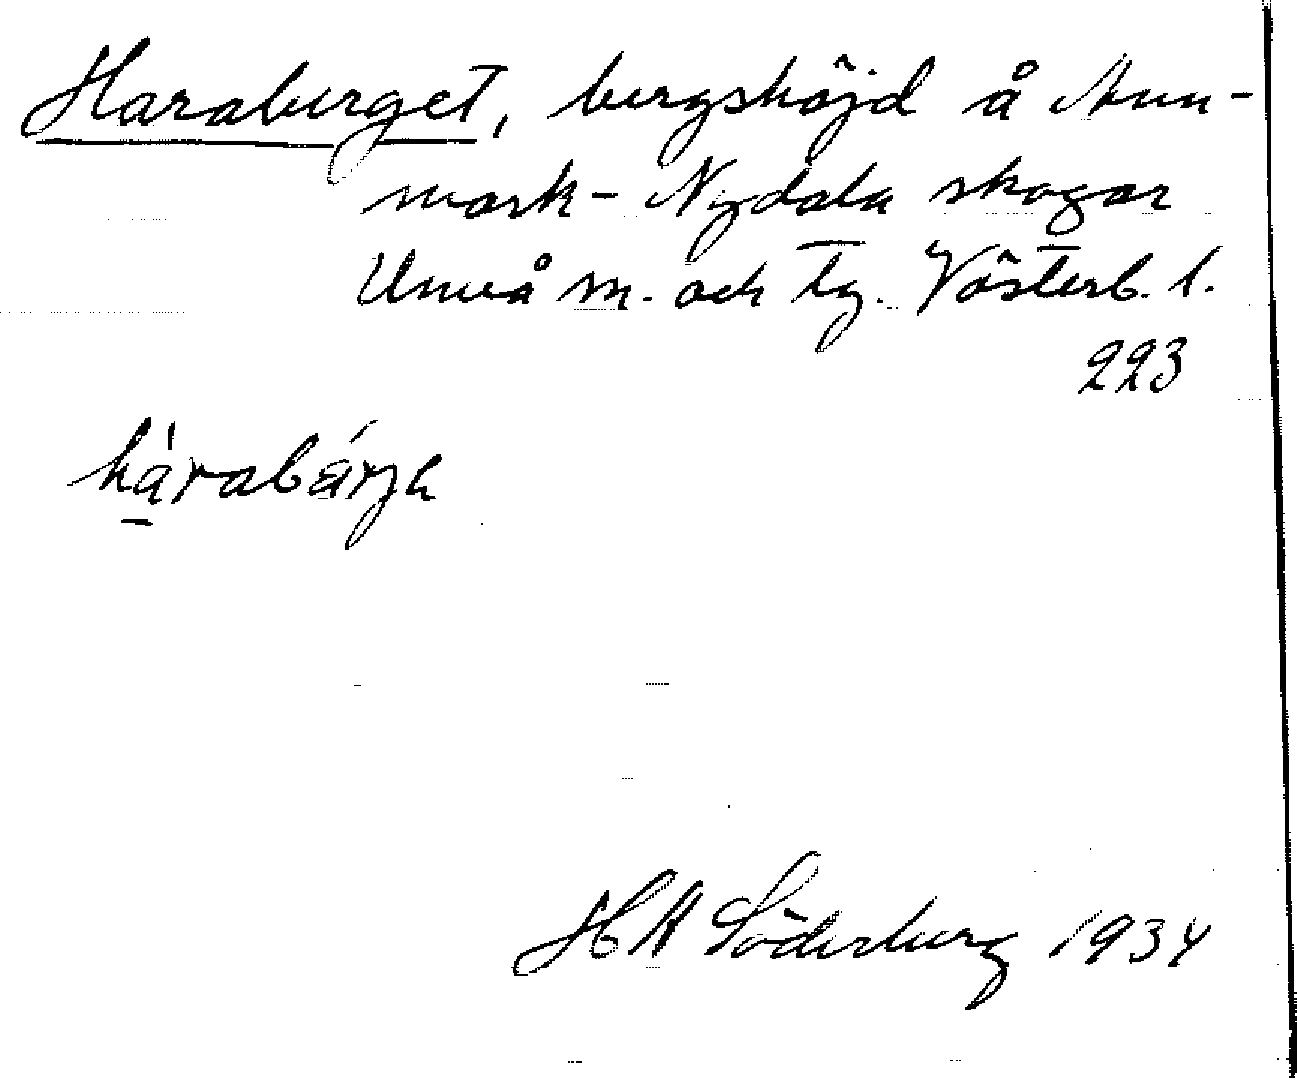 Haraberget, bergshöjd å Anu-
mark- Nydala skogar
Umeå sn. och tg. Västerb. l.
223
hàrabárja
HA Söderberg 1934